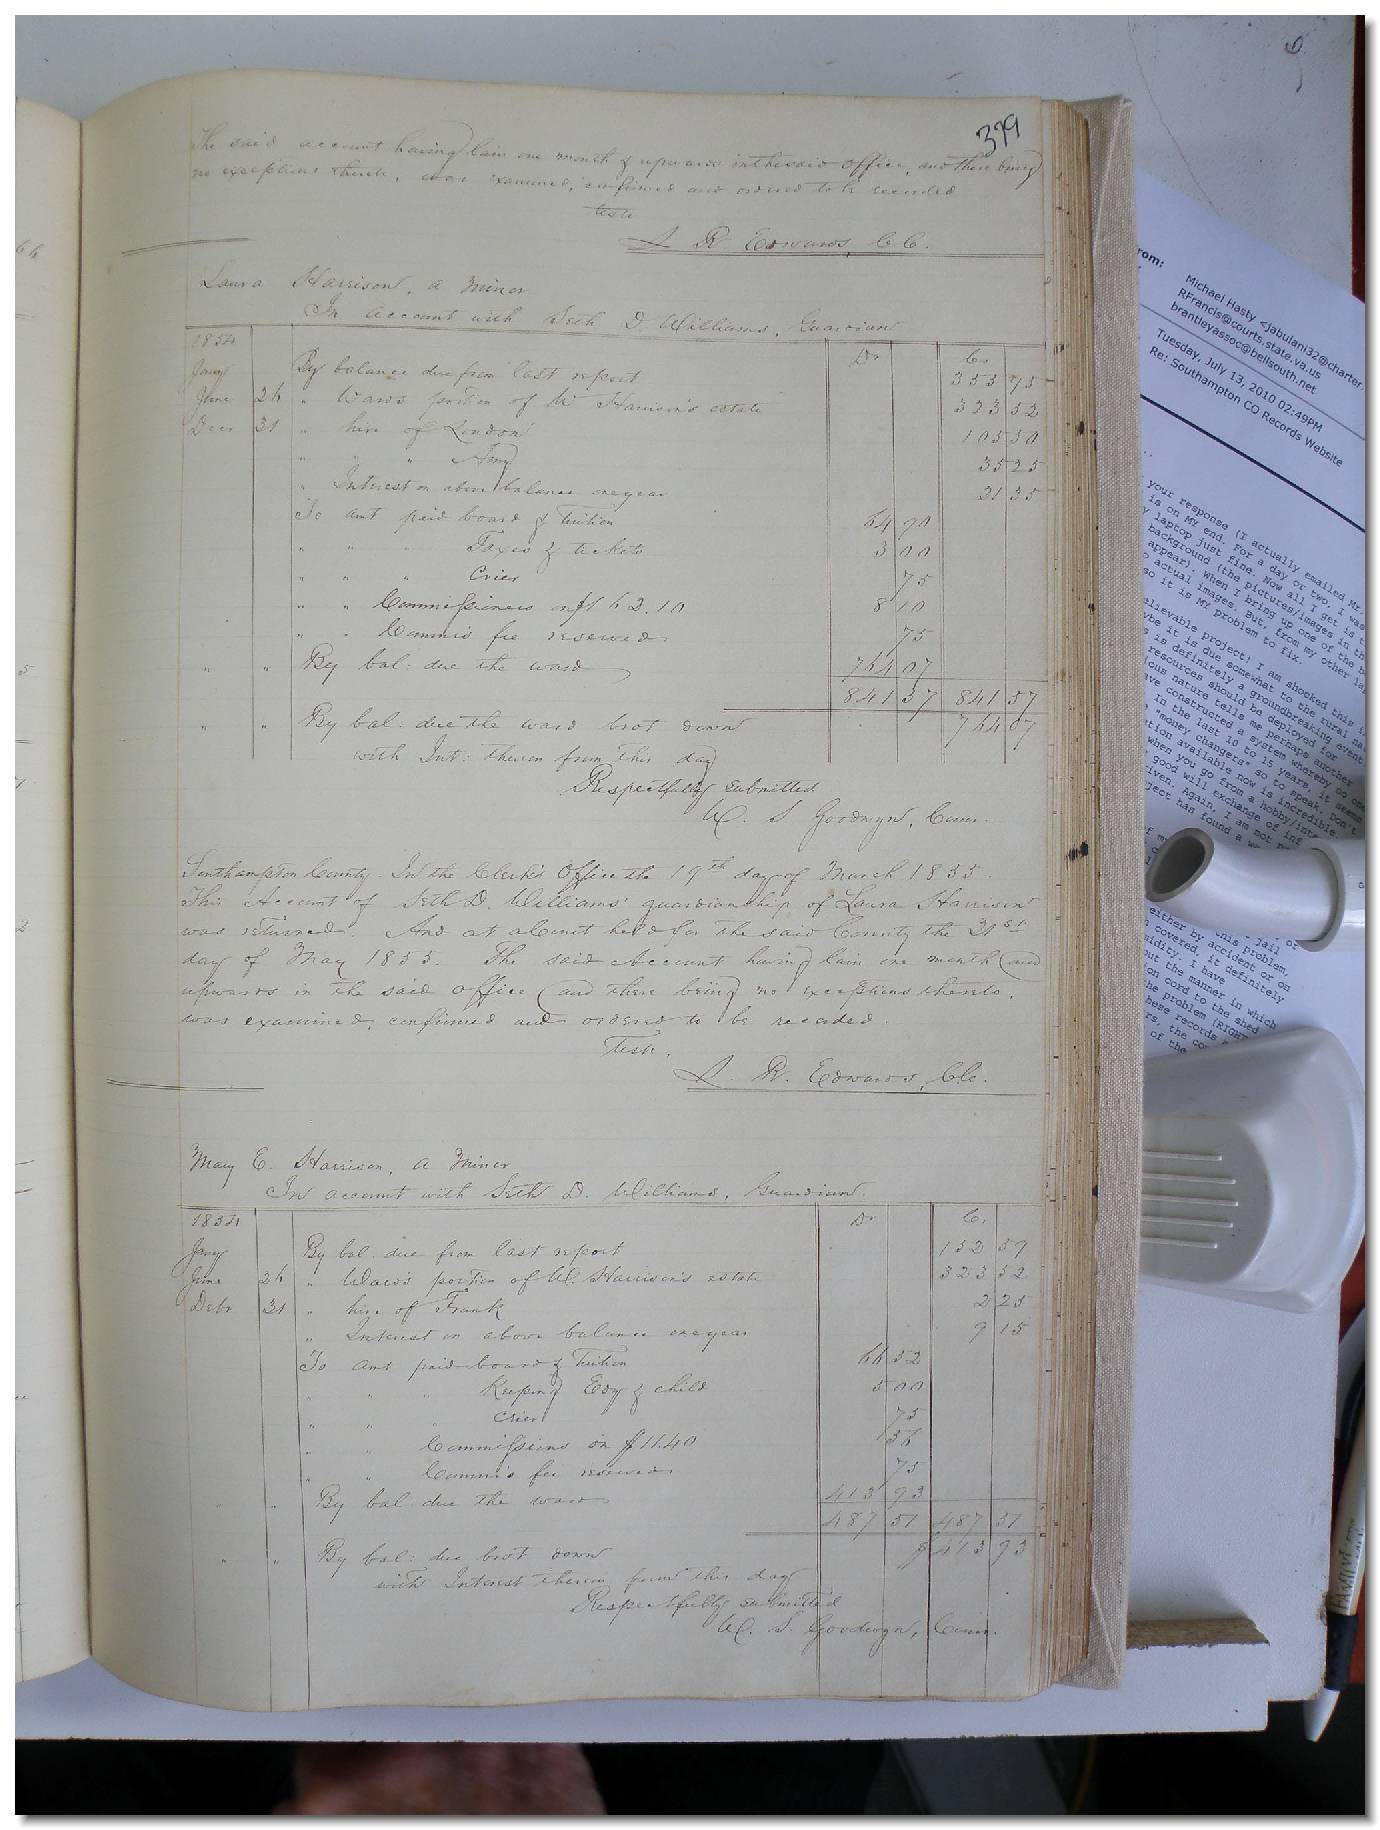 379
The said account having lain one month & upwards in the said office, and there being
no exceptions thereto, was examined, confirmed and ordered to be recorded
Teste
L R Edwards, C C.
Laura Harrison, a Minor
In account with Seth D. Williams, Guardian
1854 Dr Cr
Jany By balance due from last report 355 95
June 26 " Wards portion of W Harrison's estate 323 52
Decr 31 " hire of London 105 50
" " " Amy 35 25
" Interest on above balance one year 21 35
To amt paid board & Tuition 64 90
" " " Taxes & tickets 3 00
" " " Crier 75
" " Commissioners on $162.10 8 10
" " Commrs fee reserved 75
" " By bal: due the ward 764 07
841 57 841 57
" " By bal. due the ward brot down 764 07
with Int: thereon from this day
Respectfully submitted
W. S. Goodwyn, Comr.
Southampton County. In the Clerk's Office the 19th day of March 1855.
This Account of Seth D. Williams' guardianship of Laura Harrison
was returned. And at a Court held for the said County the 21st
day of May 1855. The said Account having lain one month and
upwards in the said office and there being no exceptions thereto,
was examined, confirmed and ordered to be recorded.
Teste.
L. R. Edwards, Clc.
Mary E. Harrison, a Minor
In account with Seth D. Williams, Guardian.
1854 Dr Cr
Jany By bal. due from last report 152 59
June 26 " Ward's portion of W. Harrison's estate 323 52
Debr 31 " hire of Frank 2 25
" Interest on above balance one year 9 15
To amt paid board & Tuition 66 52
" " " Keeping Edy & child 5 00
" " " Crier 75
" " Commissions on $11.40 56
" " Commrs fee reserved 75
" " By bal due the ward 413 93
487 51 487 51
" " By bal: due brot down $413 93
with Interest thereon from this day
Respectfully submitted
W. S. Goodwyn, Comr.
From:
Michael Hasty <jabulani32@charter.
RFrancis@courts.state.va.us
brantleyassoc@bellsouth.net
Tuesday, July 13, 2010 02:49PM
Re: Southampton CO Records Website
your response (I actually emailed Mr.
is on My end. For a day or two, I was
laptop just fine. Now all I get is
background (the pictures/images in
appear). When I bring up one of the
actual images. But, from my other
so it is My problem to fix.
project! I am shocked this
it is due somewhat to the rural
is definitely a groundbreaking event
resources should be deployed for
nature tells me perhaps another
have constructed a system whereby
In the last 10 to 15 years, it seems
"money changers" so to speak. Don't
available now is incredible.
when you go from a hobby
good will exchange of
Again, I am not
has found a
this problem,
either by accident or
covered, it definitely
I have
out the manner in which
cord to the shed
the problem (RIGHT
these records
of the